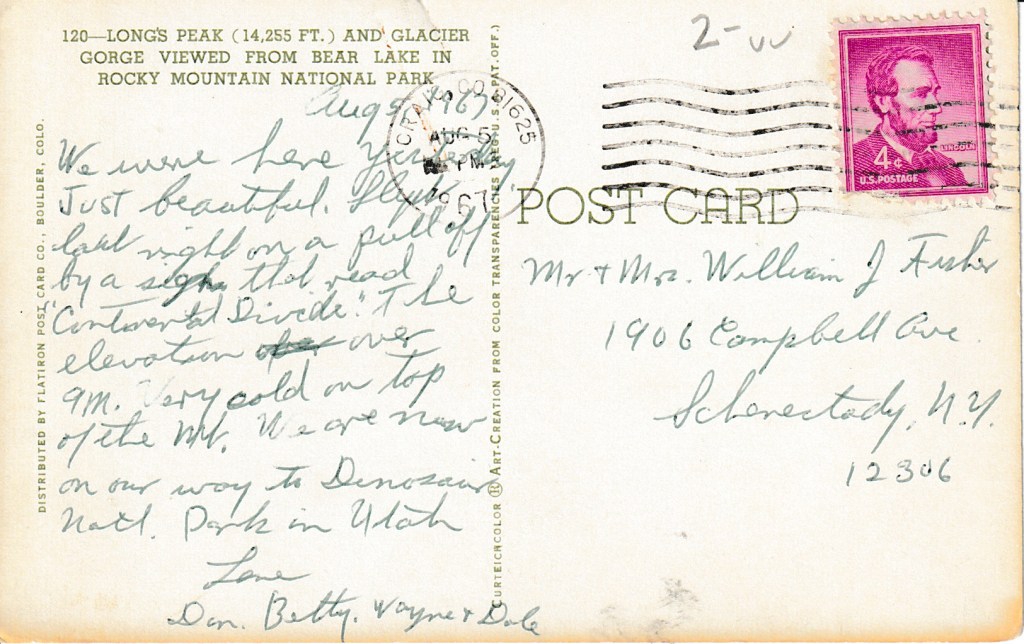 120—LONG'S PEAK (14,255 FT.) AND GLACIER
GORGE VIEWED FROM BEAR LAKE IN
ROCKY MOUNTAIN NATIONAL PARK
Aug 5, 1967
We were here Yesterday.
Just beautiful. Slept
last night on a pull off
by a sign that read
"Continental Divide." The
elevation over
9M. Very cold on top
of the Mt. We are now
on our way to Dinosaur
Natl. Park in Utah
Love
Don, Betty, Wayne & Dale
DISTRIBUTED BY FLATIRON POST CARD CO., BOULDER, COLO.
CURTEICHCOLOR ® ART-CREATION FROM COLOR TRANSPARENCIES (REG. U.S. PAT. OFF.)
CRAIG, CO 81625
AUG 5
PM
1967
2-
4¢
LINCOLN
U.S. POSTAGE
POST CARD
Mr + Mrs. William J Fisher
1906 Campbell Ave
Schenectady, N.Y.
12306